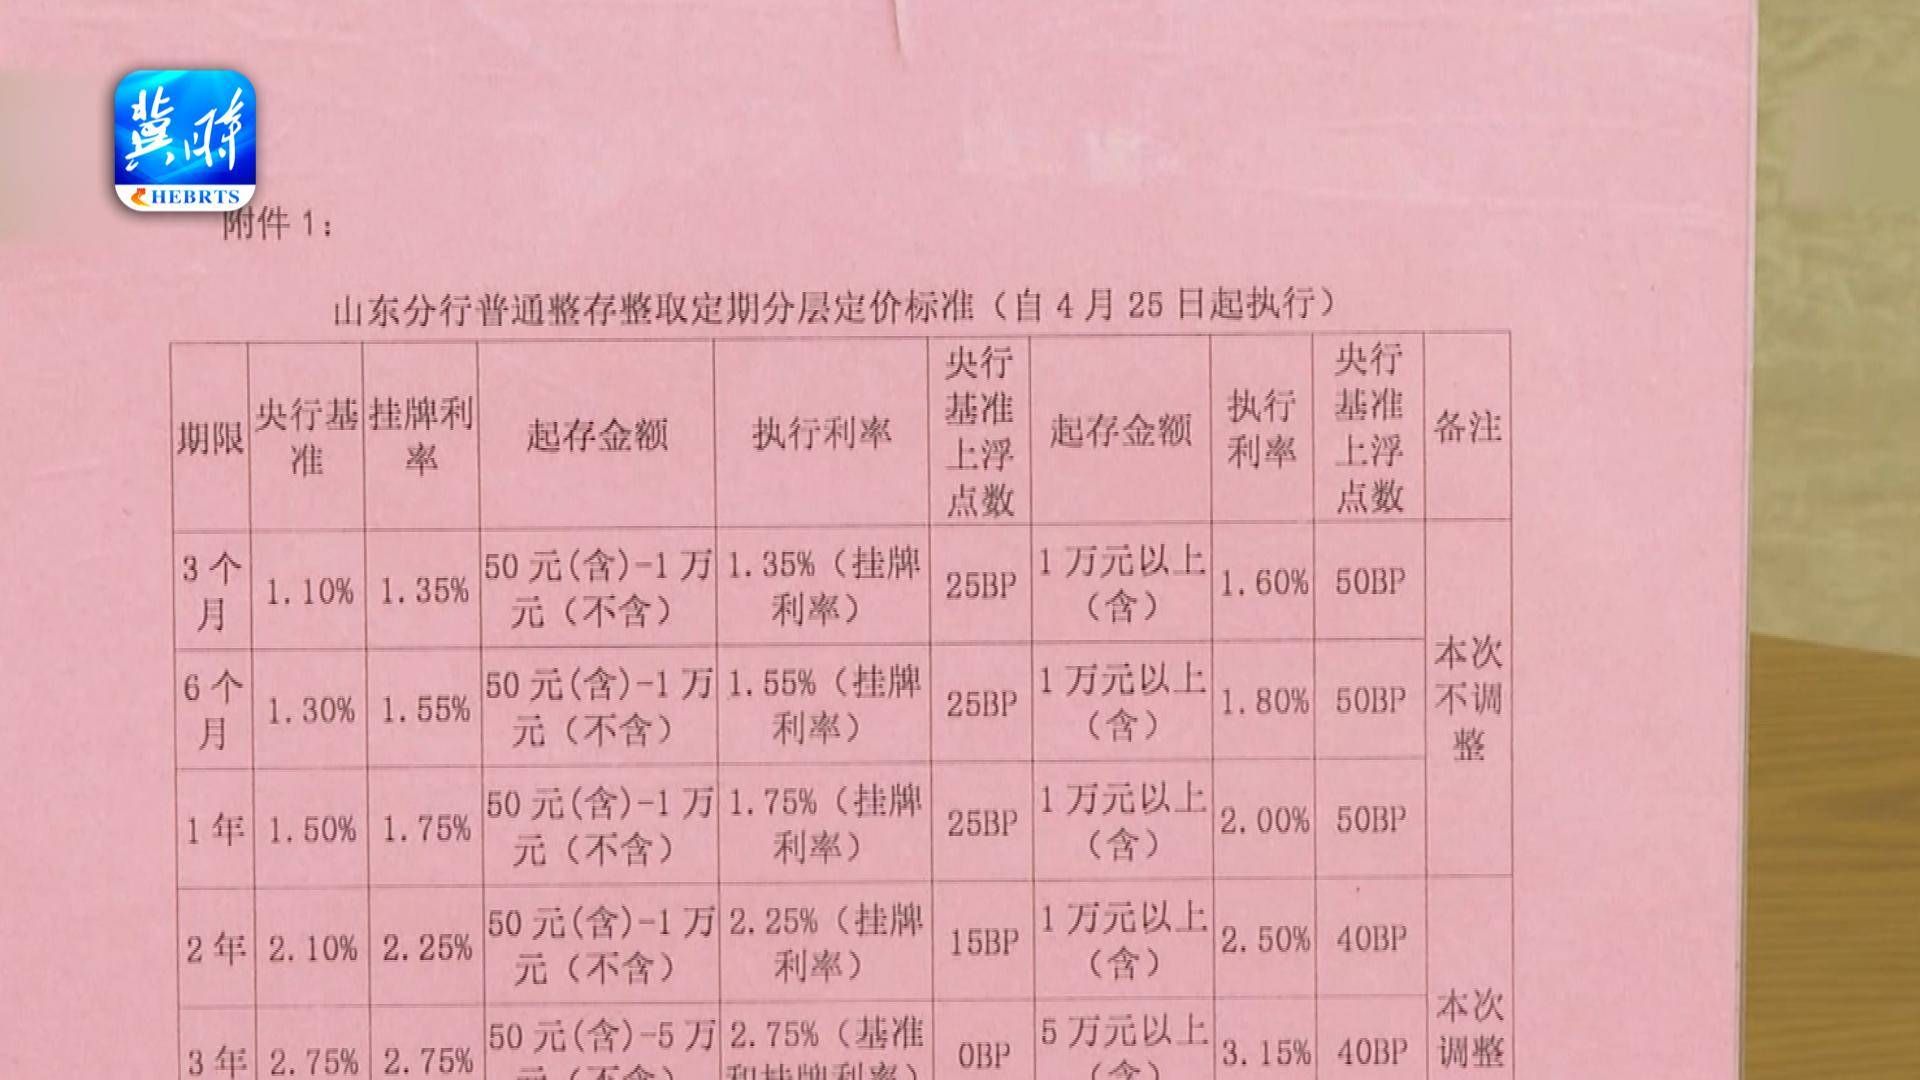 冀时
HEBRTS
附件 1：
山东分行普通整存整取定期分层定价标准（自 4 月 25 日起执行）
期限 央行基准 挂牌利率 起存金额 执行利率 央行基准上浮点数 起存金额 执行利率 央行基准上浮点数 备注
3 个月 1.10% 1.35% 50 元(含)-1 万元（不含） 1.35%（挂牌利率） 25BP 1 万元以上（含） 1.60% 50BP 本次不调整
6 个月 1.30% 1.55% 50 元(含)-1 万元（不含） 1.55%（挂牌利率） 25BP 1 万元以上（含） 1.80% 50BP
1 年 1.50% 1.75% 50 元(含)-1 万元（不含） 1.75%（挂牌利率） 25BP 1 万元以上（含） 2.00% 50BP
2 年 2.10% 2.25% 50 元(含)-1 万元（不含） 2.25%（挂牌利率） 15BP 1 万元以上（含） 2.50% 40BP 本次调整
3 年 2.75% 2.75% 50 元(含)-5 万元（不含） 2.75%（基准和挂牌利率） 0BP 5 万元以上（含） 3.15% 40BP